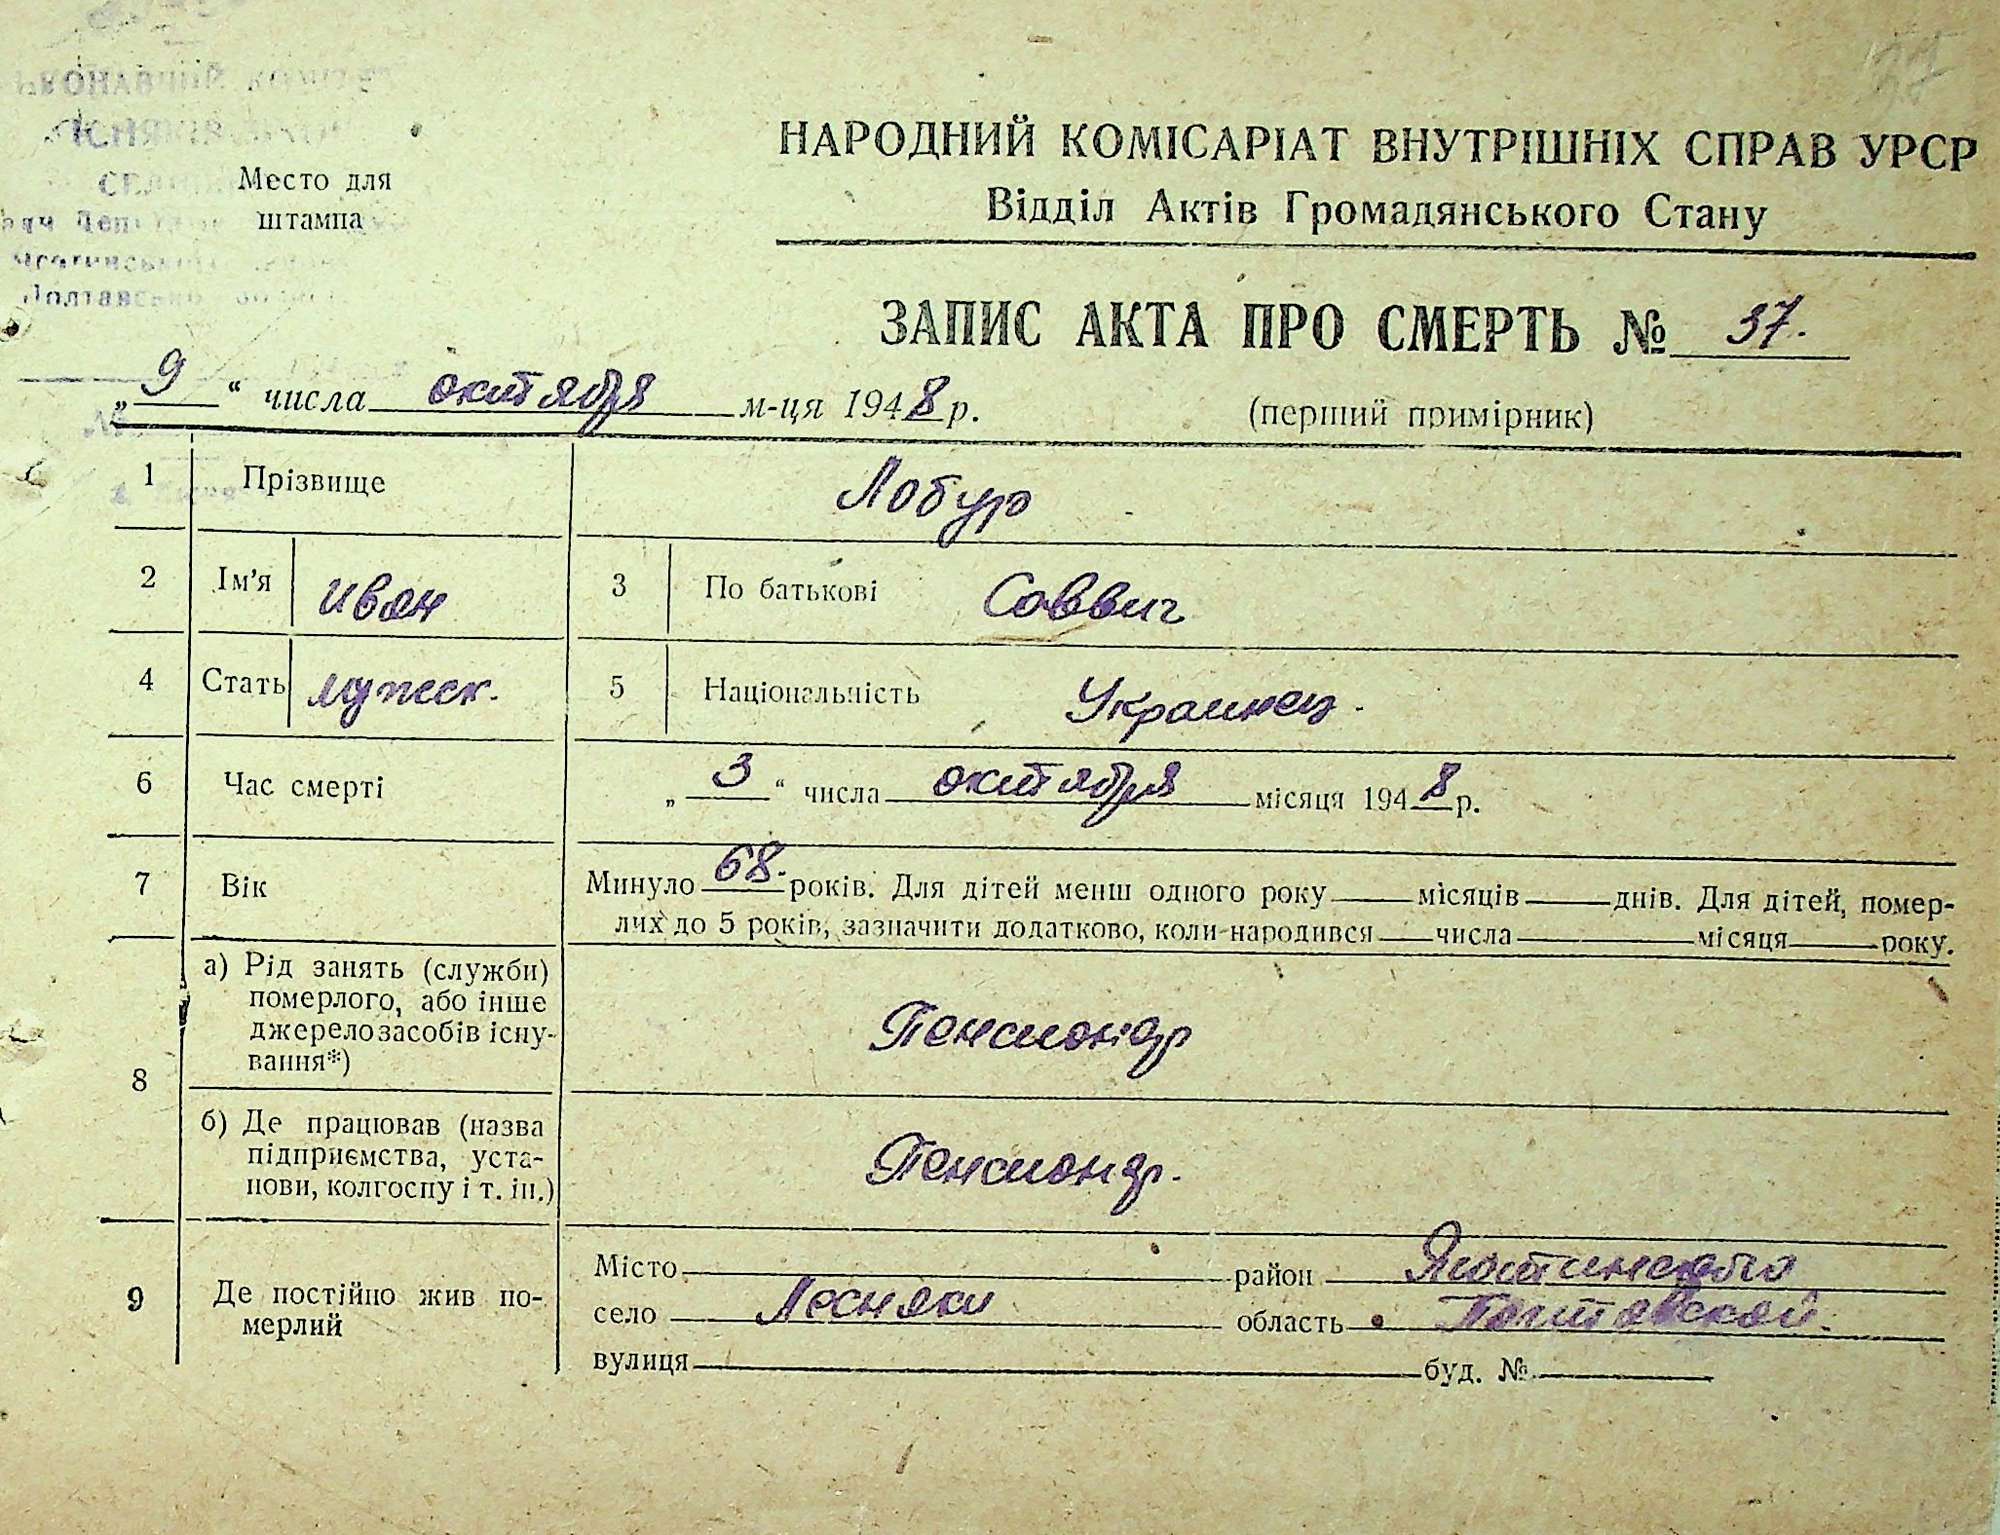 37
НАРОДНИЙ КОМІСАРІАТ ВНУТРІШНІХ СПРАВ УРСР
Відділ Актів Громадянського Стану
Место для
штампа
ЗАПИС АКТА ПРО СМЕРТЬ № 37.
„9“ числа октября м-ця 1948 р.
(перший примірник)
1 Прізвище Лобур
2 Ім'я Иван 3 По батькові Саввич
4 Стать мужск. 5 Національність Украинец.
6 Час смерті „3“ числа октября місяця 1948 р.
7 Вік Минуло 68. років. Для дітей менш одного року місяців днів. Для дітей, помер-
лих до 5 років, зазначити додатково, коли народився числа місяця року.
8 а) Рід занять (служби)
померлого, або інше
джерело засобів існу-
вання*) Пенсионер
б) Де працював (назва
підприємства, уста-
нови, колгоспу і т. ін.) Пенсионер.
9 Де постійно жив по-
мерлий
Місто район Яготинского
село Лесняки область Полтавской.
вулиця буд. №